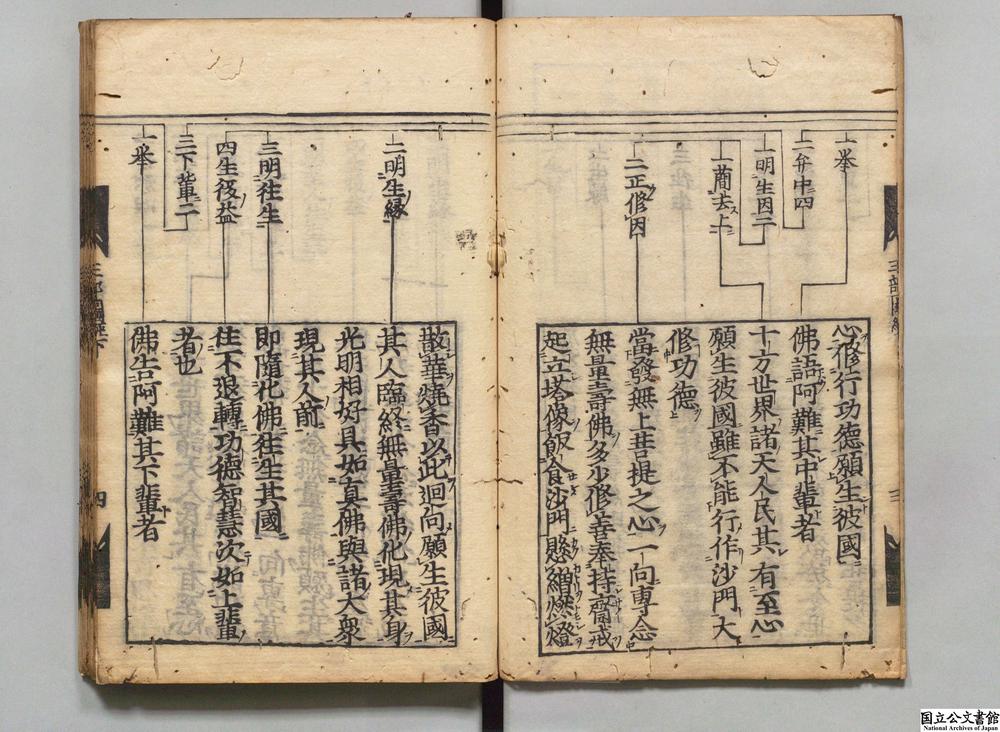 一挙
二弁中四
一明生因二
一蕳去上
二正修因
心修行功德願生彼國
佛語阿難其中輩者
十方世界諸天人民其有至心
願生彼國雖不能行作沙門大
修功德
當發無上菩提之心一向專念
無量壽佛多少修善奉持齋戒
起立塔像飯食沙門懸繒燃燈
二明生縁
三明往生
四生後益
三下輩二
一挙
散華燒香以此迴向願生彼國
其人臨終無量壽佛化現其身
光明相好具如真佛與諸大衆
現其人前
即隨化佛往生其國
住不退轉功德智慧次如上輩
者也
佛告阿難其下輩者
四
国立公文書館
National Archives of Japan